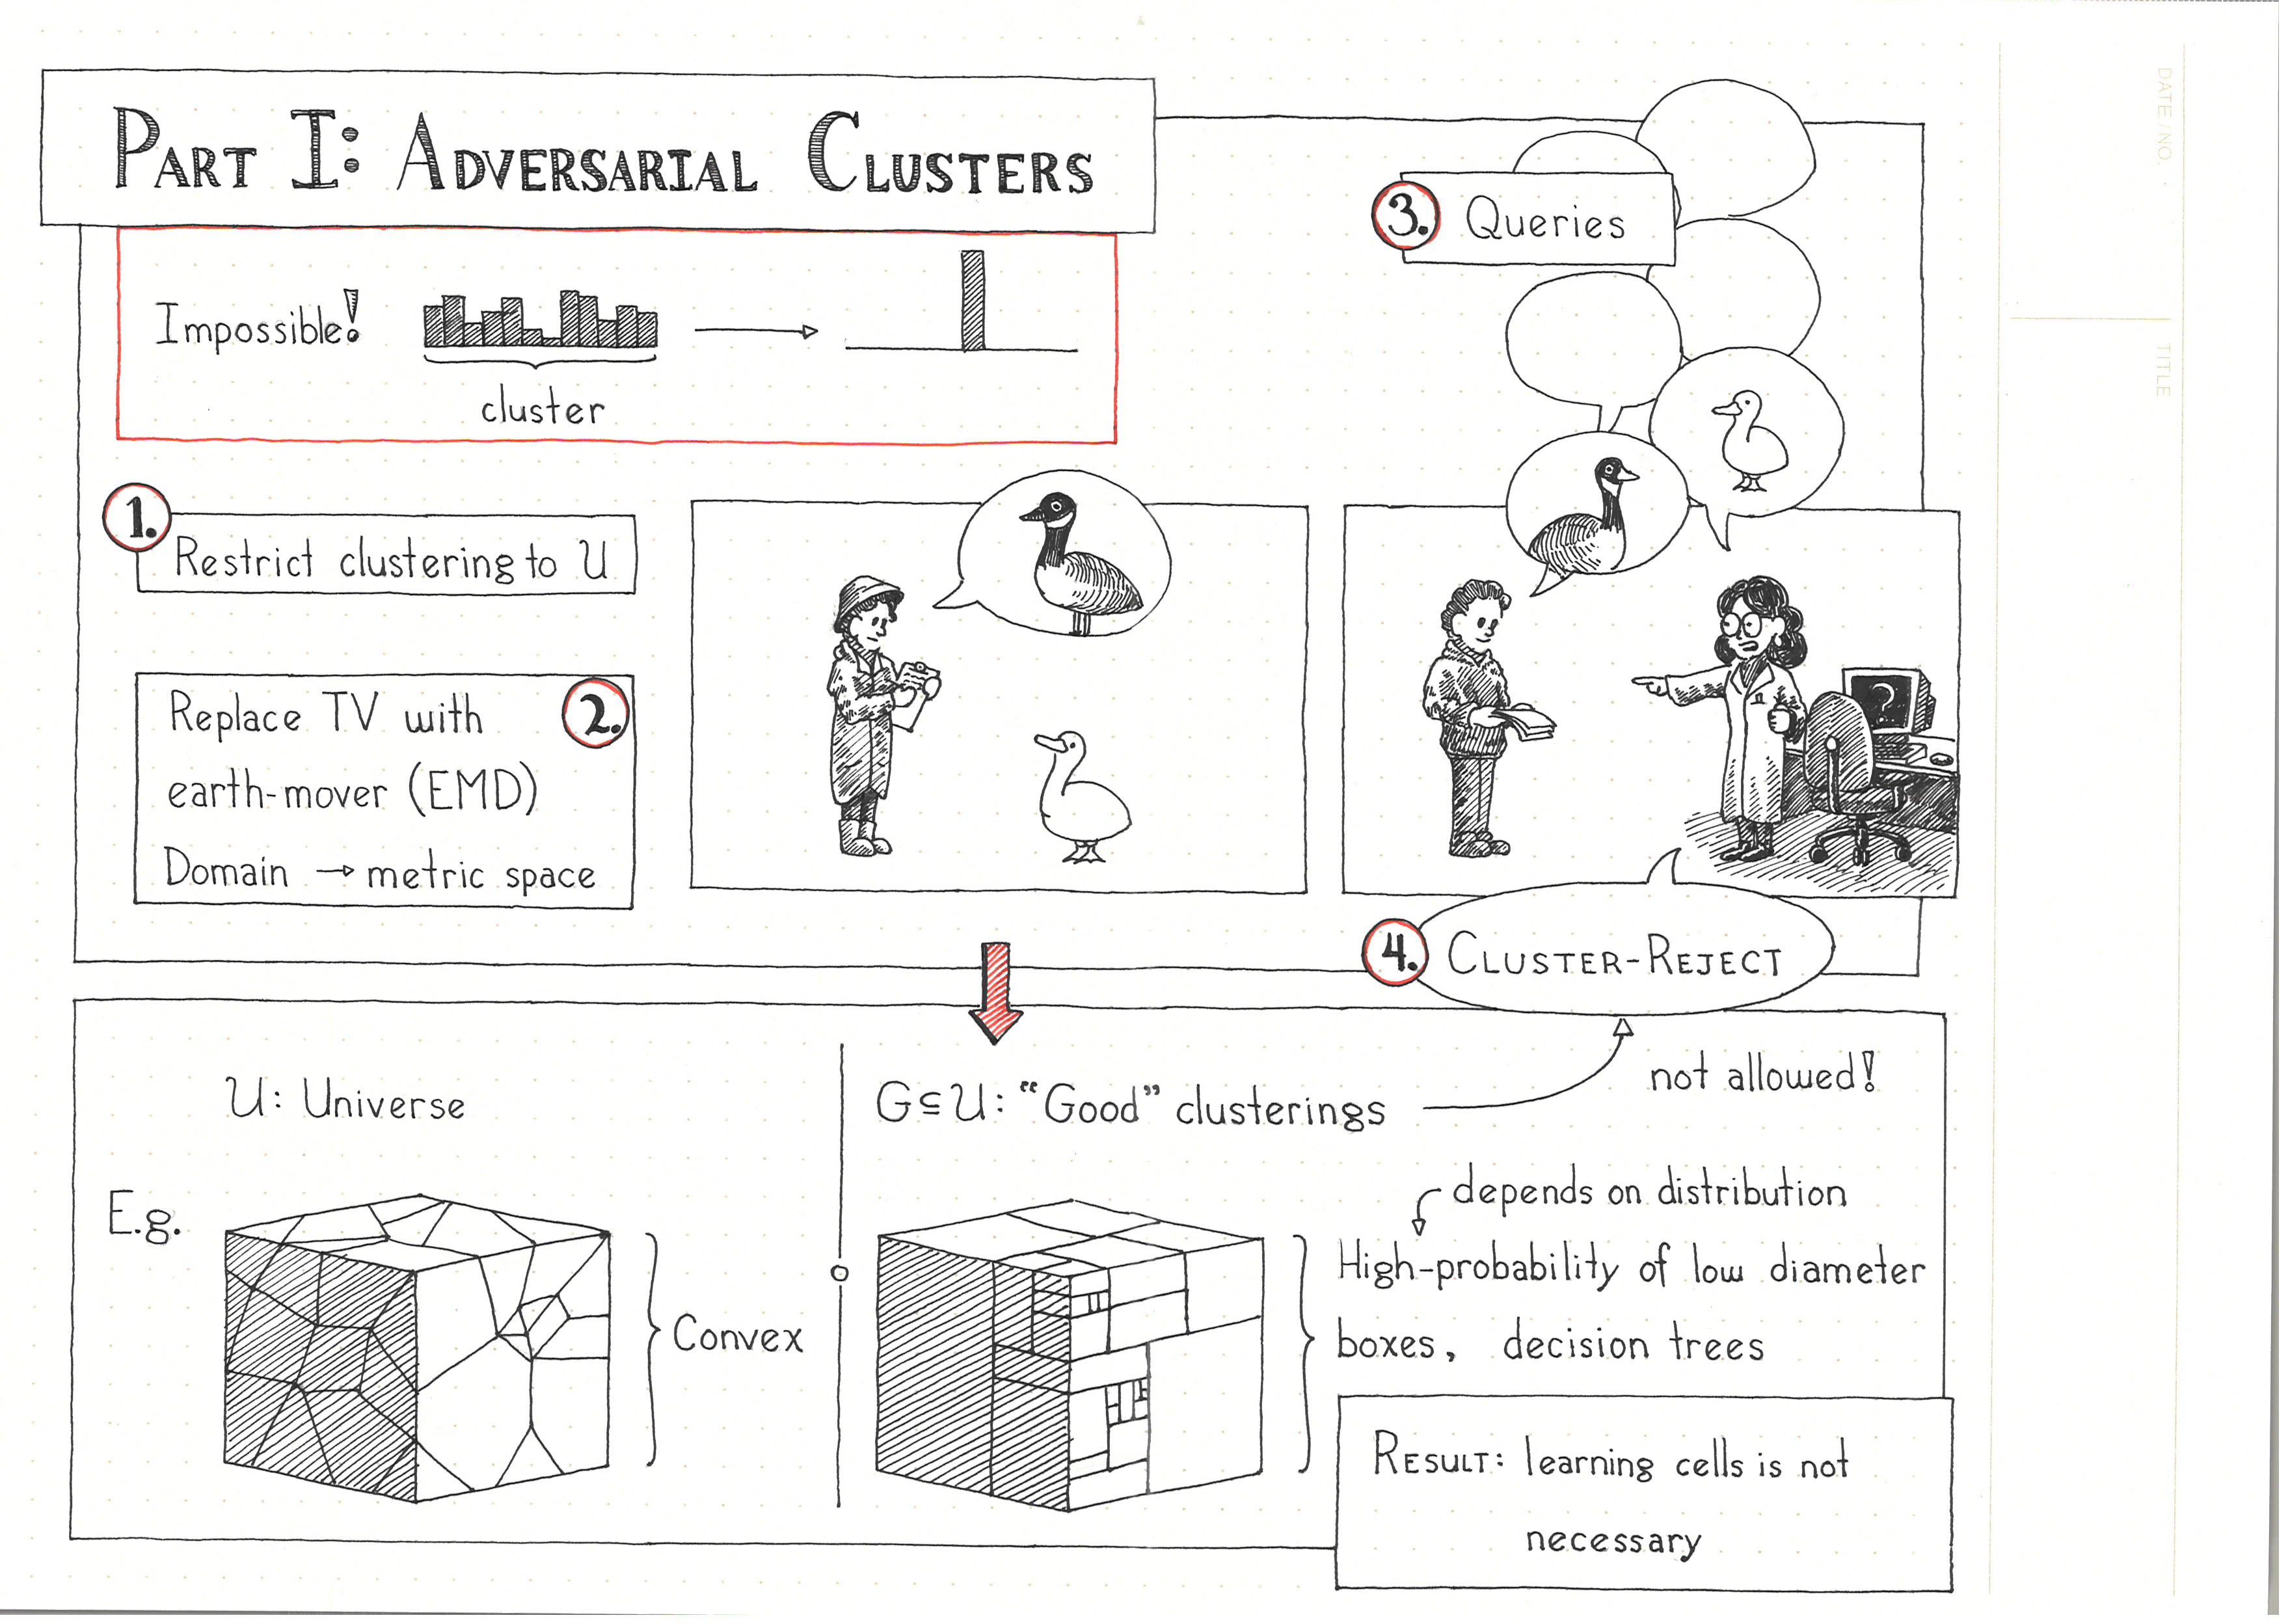 PART I: ADVERSARIAL CLUSTERS
Impossible!
cluster
1.
Restrict clustering to U
2.
Replace TV with
earth-mover (EMD)
Domain → metric space
3. Queries
?
4. CLUSTER-REJECT
U: Universe
E.g.
Convex
G⊆U: “Good” clusterings
not allowed!
depends on distribution
High-probability of low diameter
boxes, decision trees
RESULT: learning cells is not
necessary
DATE/NO.
TITLE